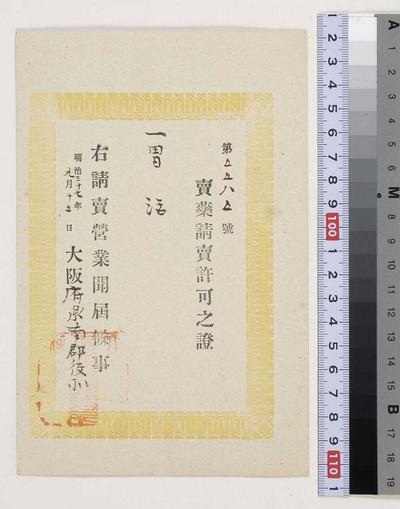 第五五八五號
賣藥請賣許可之證
一胃活
右請賣營業聞届候事
明治三十七年
九月十五日
大阪府泉南郡役所
1 2 3 4 5 6 7 8 9 100 1 2 3 4 5 6 7 8 9 110 1
A 1 2 3 4 5 6 M 8 9 10 11 12 13 14 15 B 17 18 19